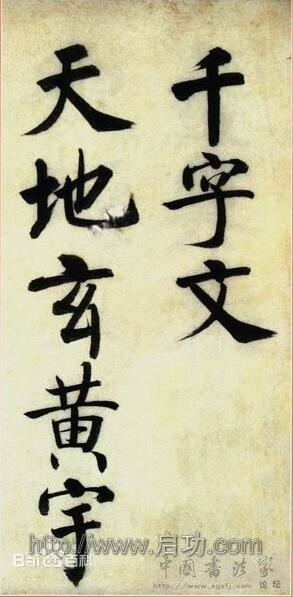 千字文
天地玄黄宇
http://www.启功.com
Bai百科
中国书法家
http://www.zgsfj.com
论坛